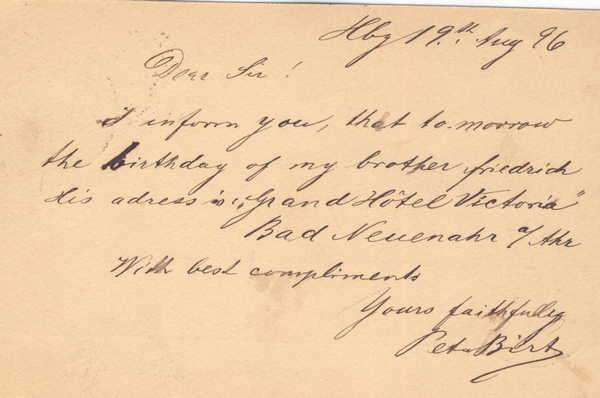 Hbg 19th. Aug 96
Dear Sir!
I inform you, that to-morrow
the birthday of my brother friedrich
His adress is „Grand Hôtel Victoria"
Bad Neuenahr a/Ahr
With best compliments
Yours faithfully
Peter Birt